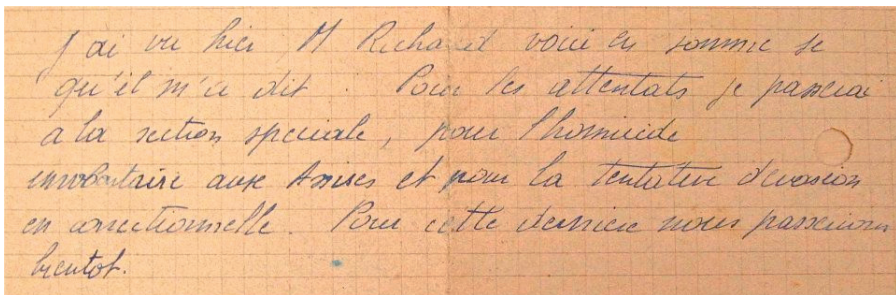 J'ai vu hier M Richard voici en somme se
qu'il m'a dit. Pour les attentats je passerai
a la section speciale, pour l'homicide
involontaire aux Assises et pour la tentative d'evasion
en correctionnelle. Pour cette derniere nous passerons
bientot.